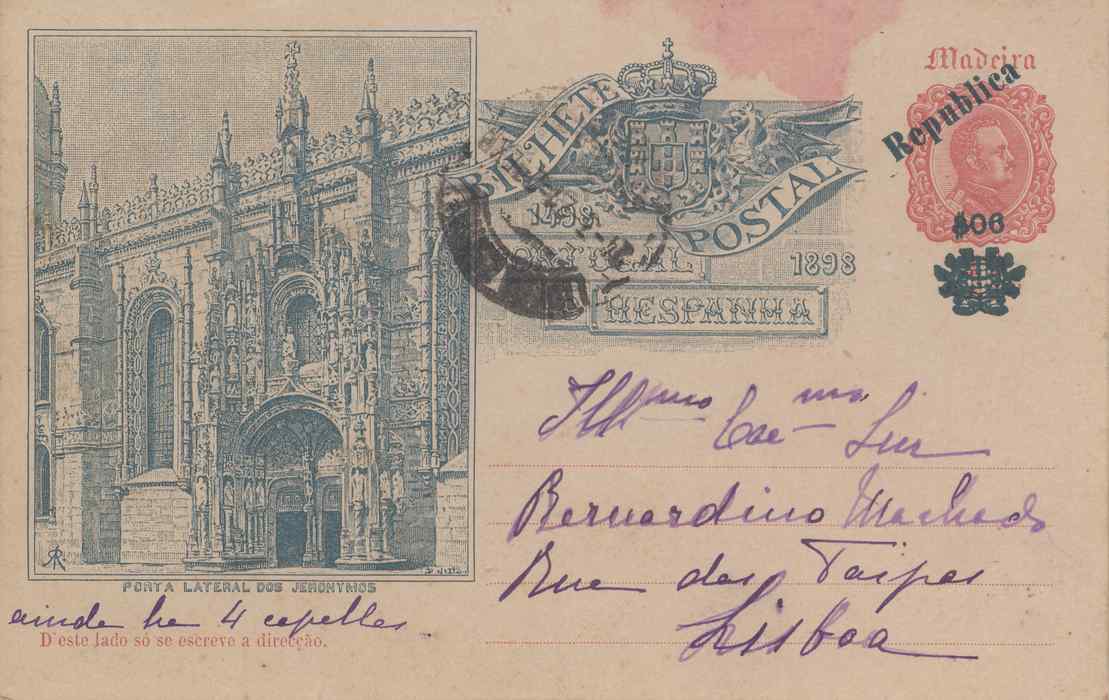 Madeira
Republica
$06
BILHETE POSTAL
1498
PORTUGAL
1898
HESPANHA
Illmo Exmo Snr
Bernardino Machado
Rua das Taipas
Lisboa
PORTA LATERAL DOS JERONYMOS
ainda ha 4 capellas
D'este lado só se escreve a direcção.